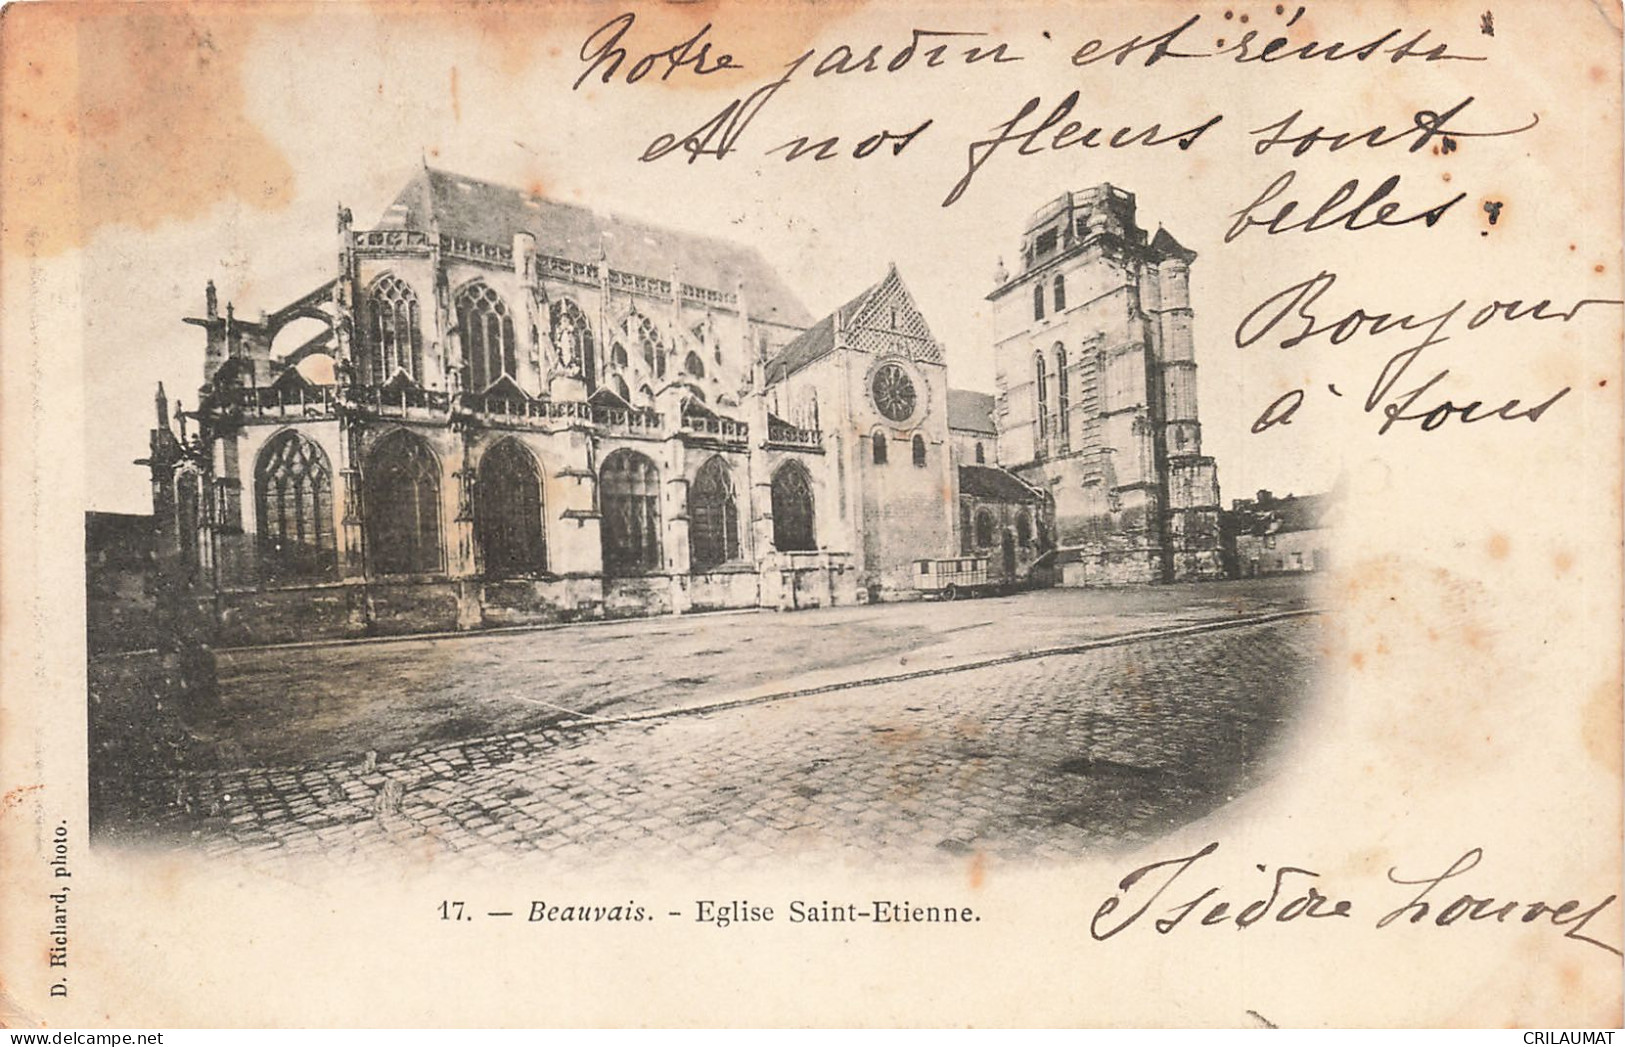 Notre jardin est réussi
et nos fleurs sont
belles.
Bonjour
à tous
Isidore Louvet
17. — Beauvais. - Eglise Saint-Etienne.
D. Richard, photo.
CRILAUMAT